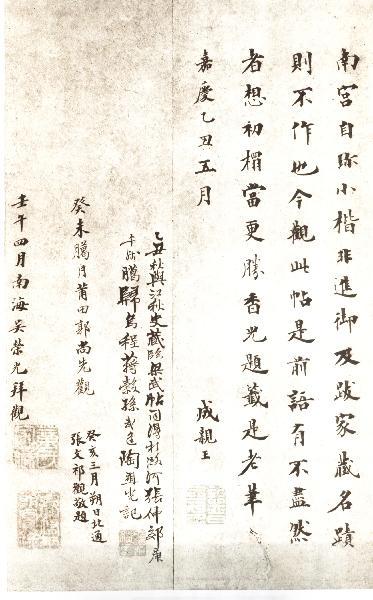 南宮自珎小楷非進御及跋家藏名蹟
則不作也今觀此帖是前語有不盡然
者想初搨當更勝香光題籤是老筆
嘉慶乙丑五月
成親王
乙丑秋與江秋史藏隋 帖同得 張仲郊
歸烏程蔣穀孫 陶 記
癸未臘月莆田郭尚先觀
癸亥三月朔日北通
張文祁觀敬題
壬午四月南海吳榮光拜觀